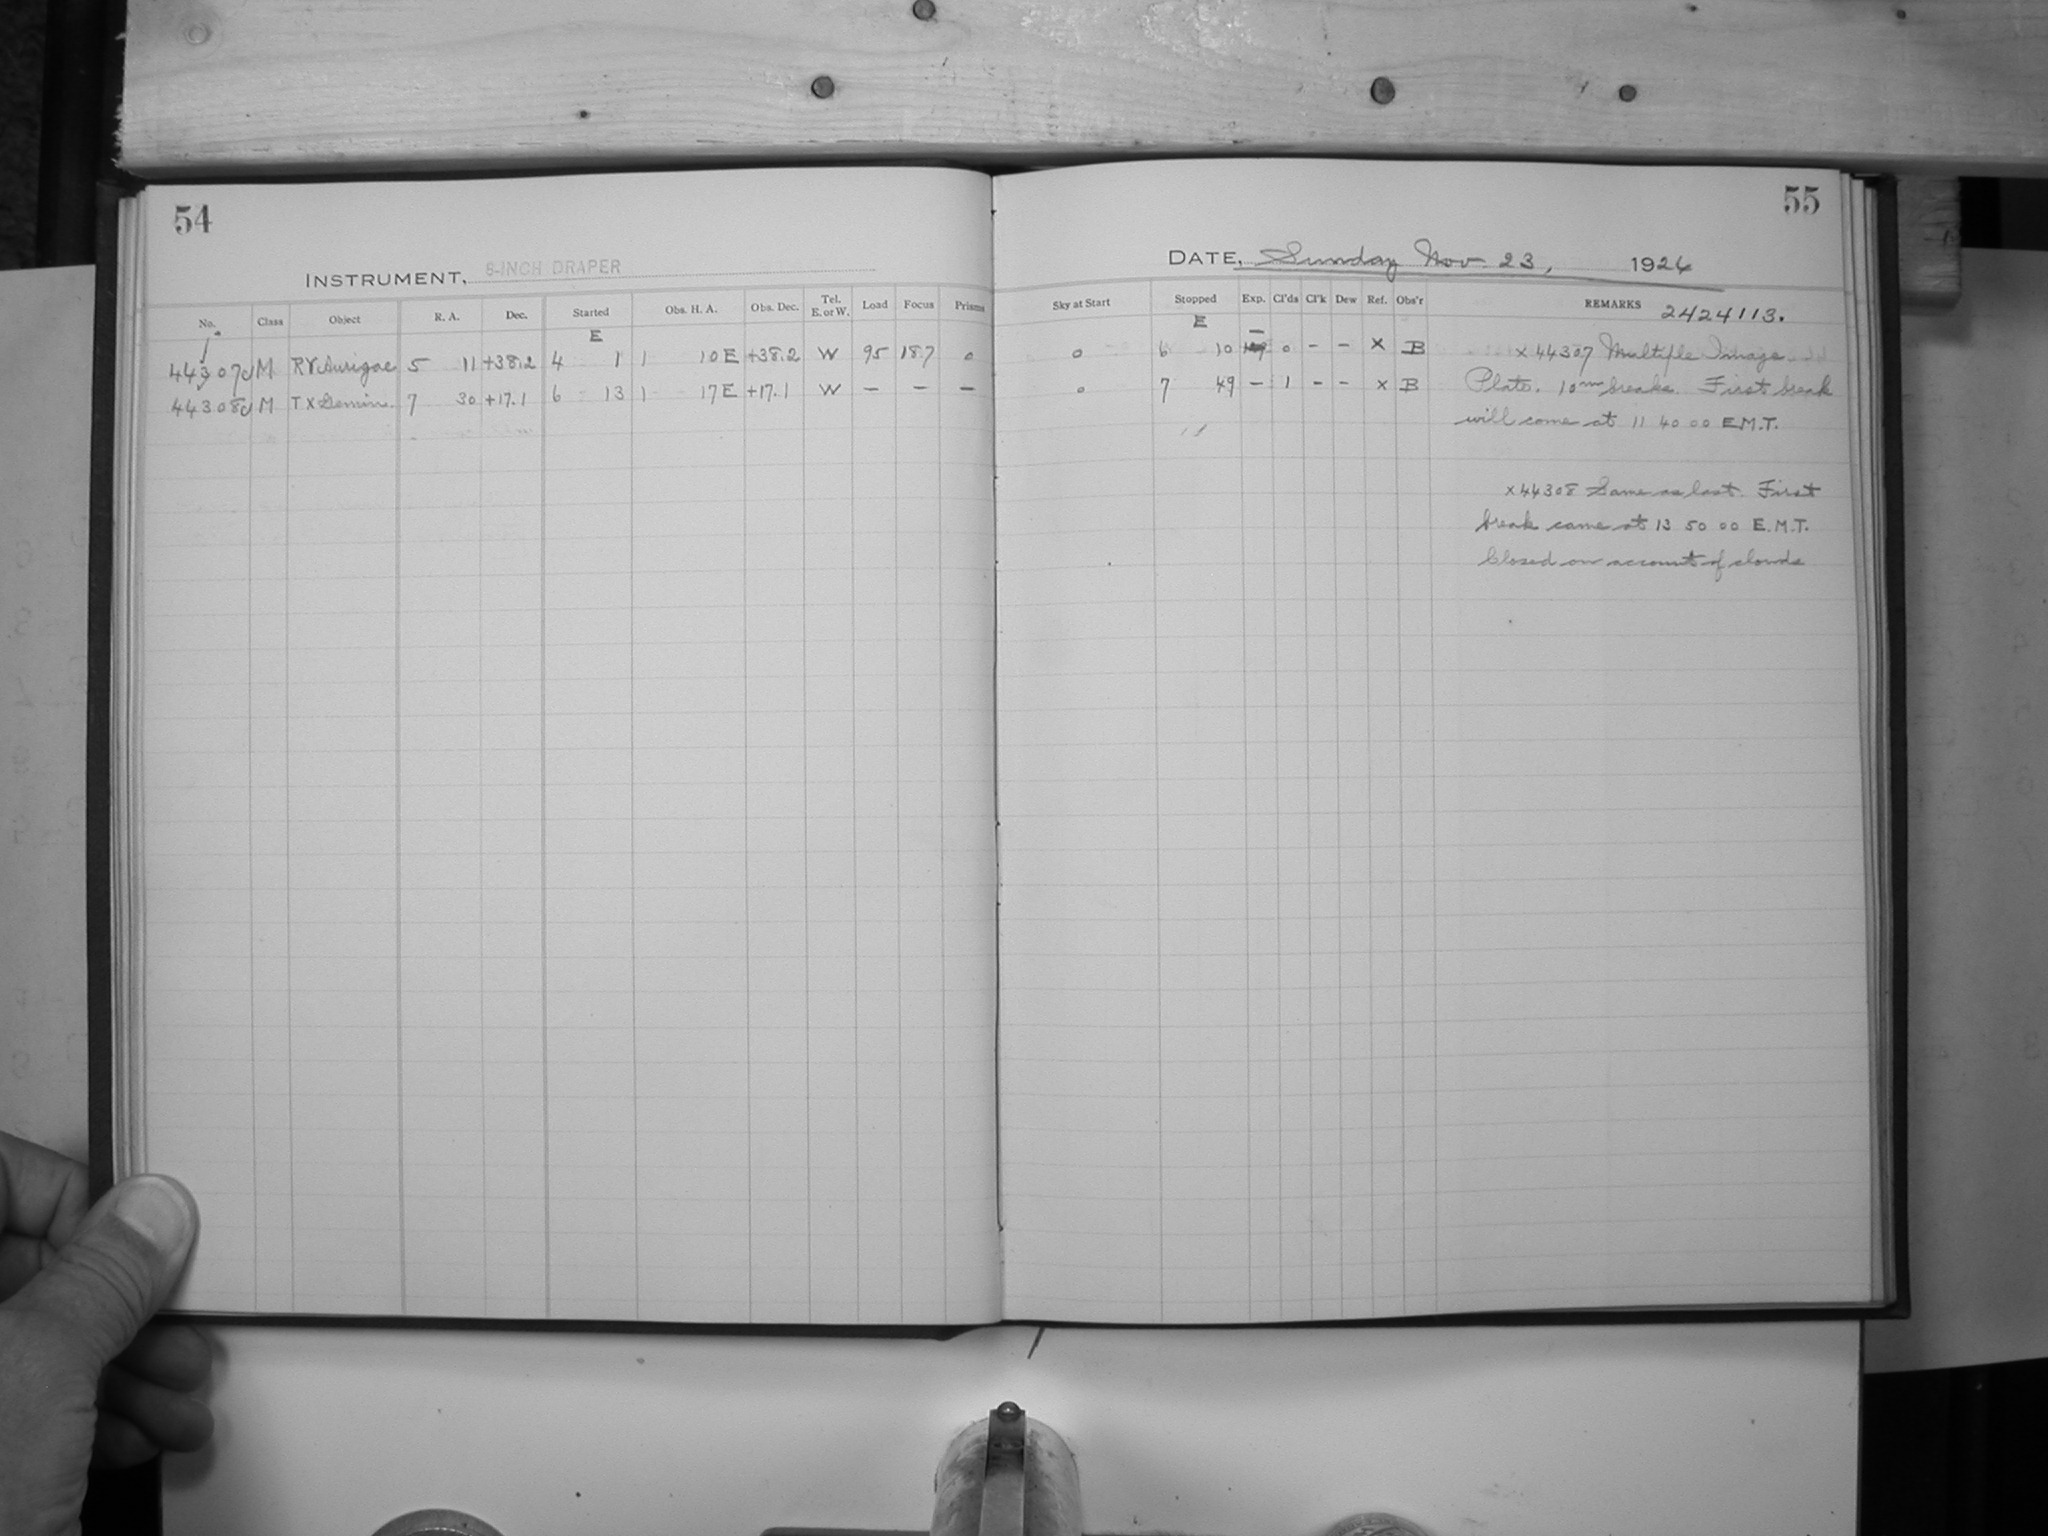 54
INSTRUMENT, 8-INCH DRAPER
No. Class Object R. A. Dec. Started Obs. H. A. Obs. Dec. Tel. E. or W. Load Focus Prisms
E
44307 M RV Aurigae 5 11 +38.2 4 1 1 10 E +38.2 W 95 18.7 0
44308 M TX Gemin. 7 30 +17.1 6 13 1 17 E +17.1 W — — —
55
DATE, Sunday Nov. 23, 1924
Sky at Start Stopped Exp. Cl'ds Cl'k Dew Ref. Obs'r REMARKS 2424113.
E
0 6 10 — 0 – – x B x44307 Multiple Image
0 7 49 – 1 – – x B Plate. 10m breaks. First break
will come at 11 40 00 E.M.T.
x44308 Same as last. First
break came at 13 50 00 E.M.T.
Closed on account of clouds